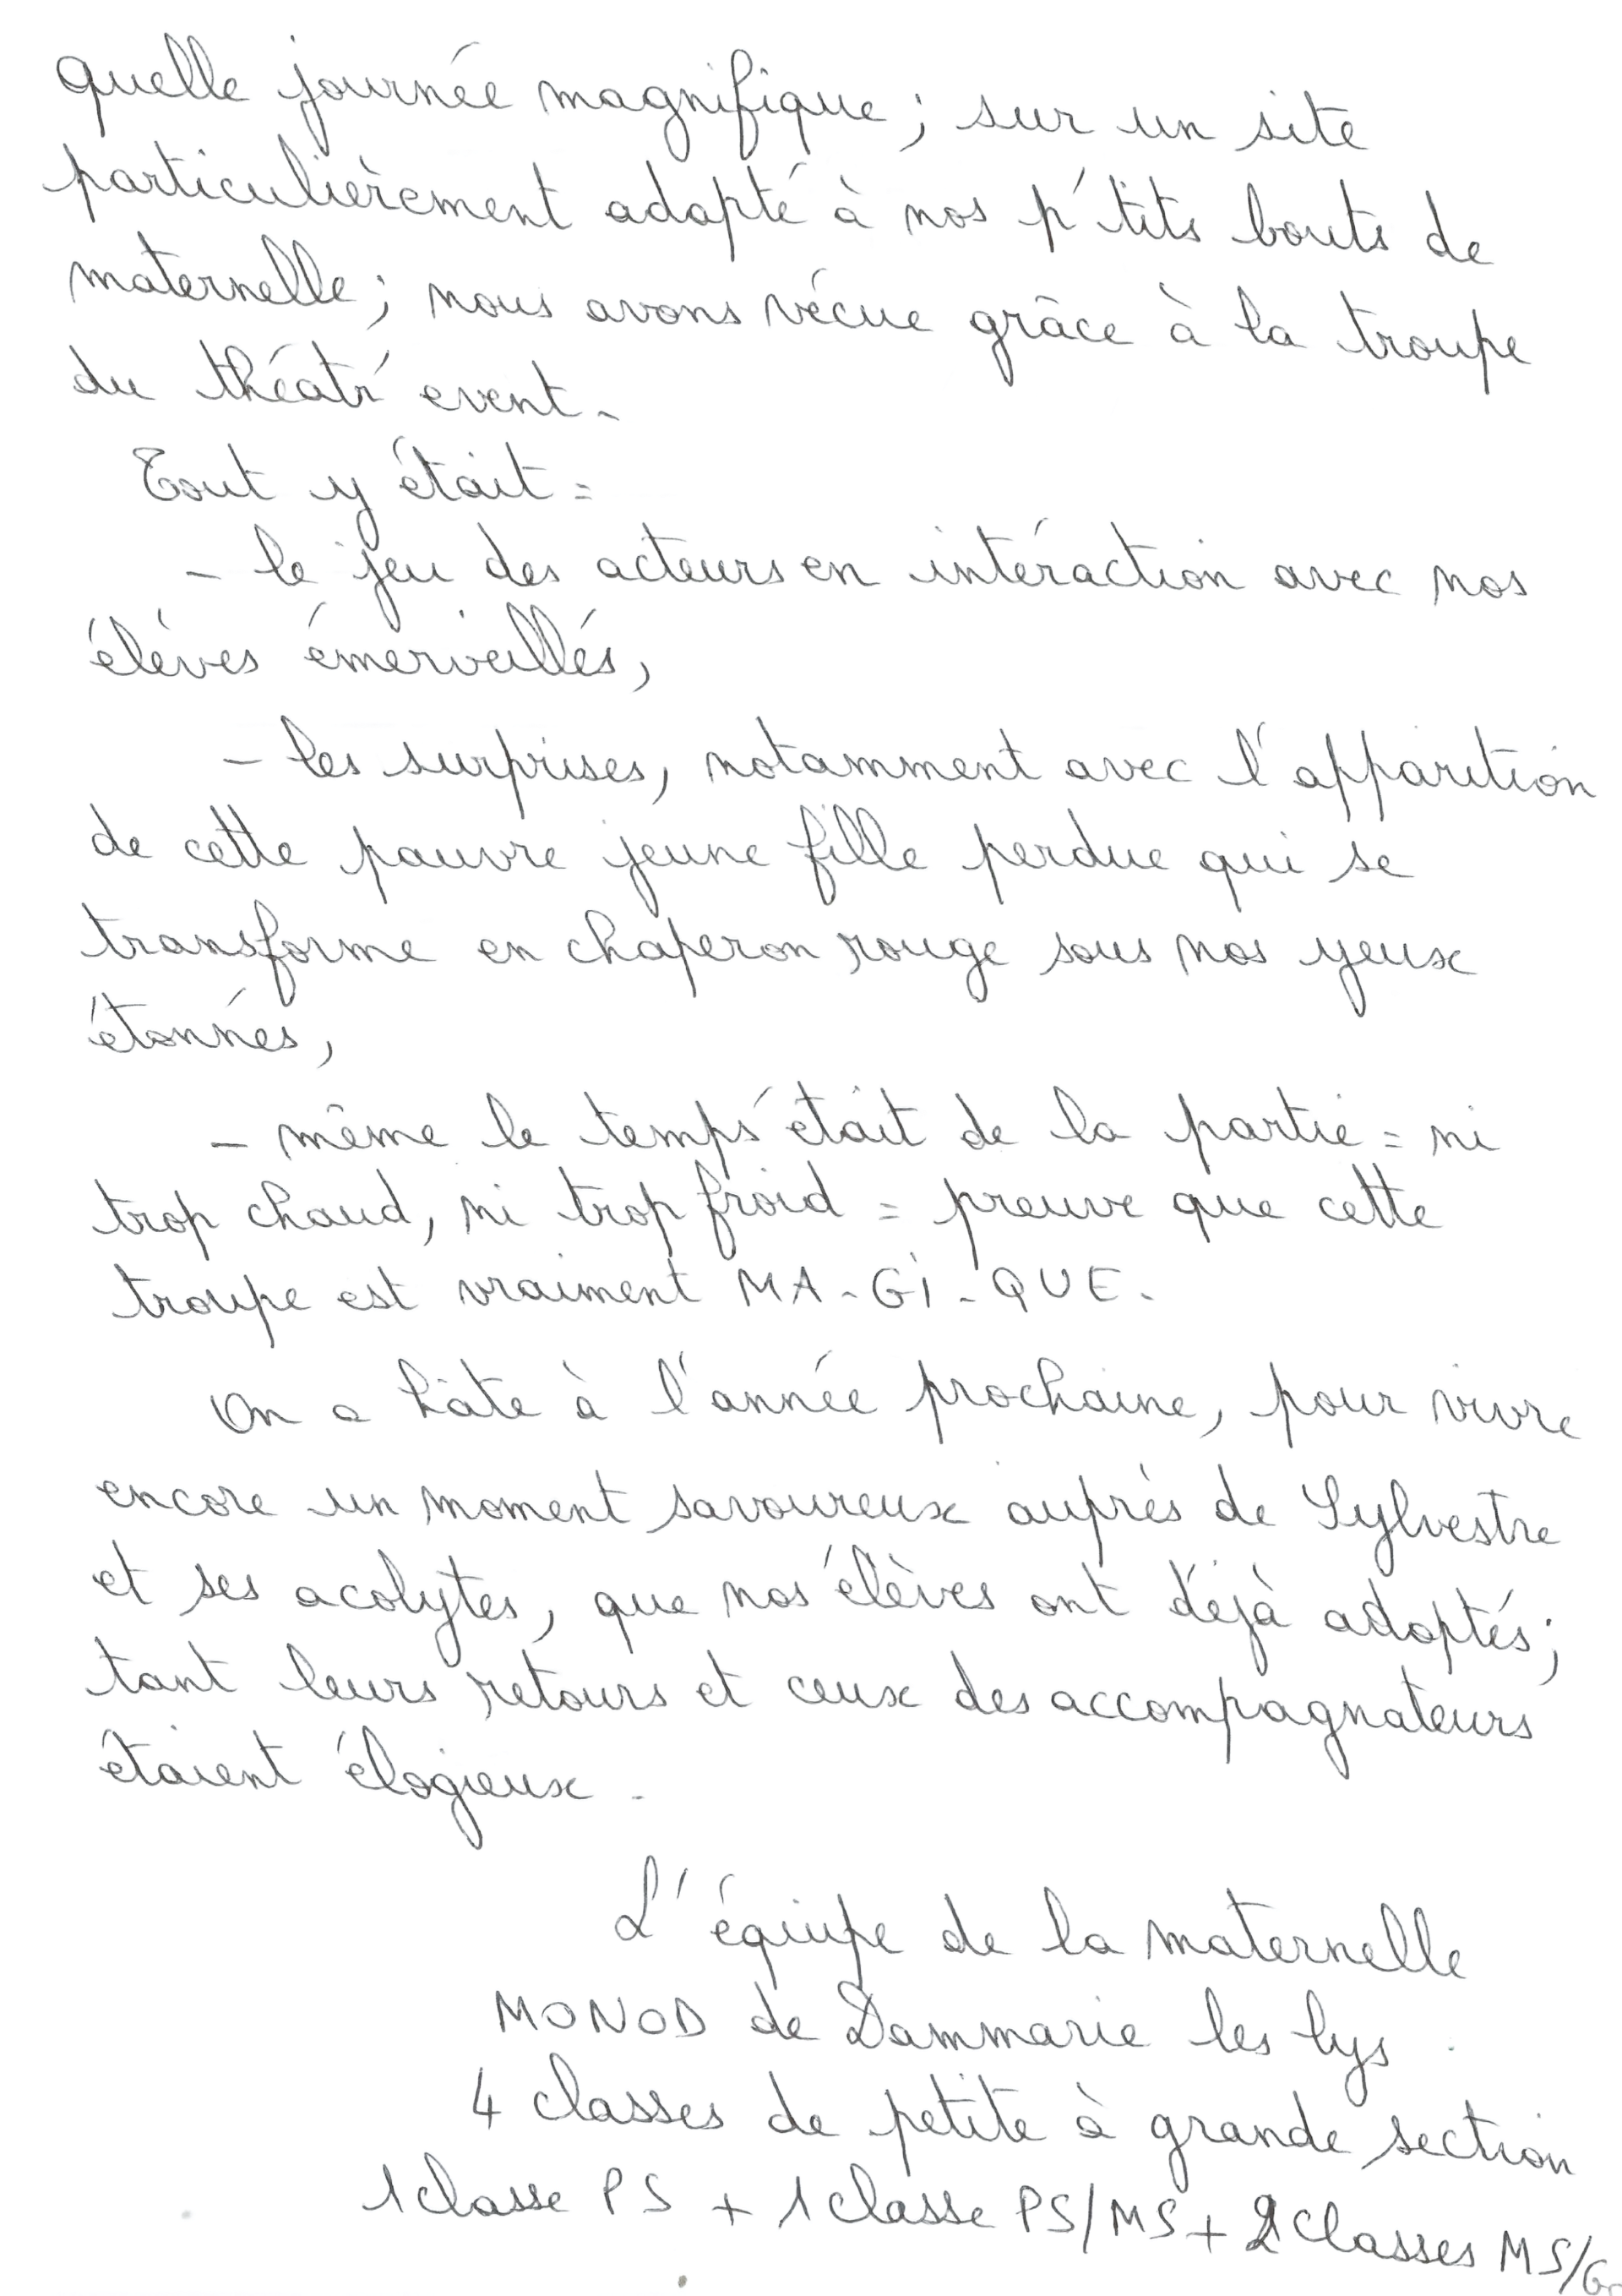 quelle journée magnifique ; sur un site
particulièrement adapté à nos p'tits bouts de
maternelle ; nous avons vécue grâce à la troupe
du théâtr' event.
Tout y était :
- le jeu des acteurs en intéraction avec nos
élèves émerveillés,
- les surprises, notamment avec l'apparition
de cette pauvre jeune fille perdue qui se
transforme en chaperon rouge sous nos yeux
étonnés,
- même le temps était de la partie : ni
trop chaud, ni trop froid : preuve que cette
troupe est vraiment MA-GI-QUE.
On a hâte à l'année prochaine, pour vivre
encore un moment savoureux auprès de Sylvestre
et ses acolytes, que nos élèves ont déjà adoptés ;
tant leurs retours et ceux des accompagnateurs
étaient élogieux.
L'équipe de la maternelle
MONOD de Dammarie les lys.
4 classes de petite à grande section
1 classe PS + 1 classe PS/MS + 2 classes MS/G